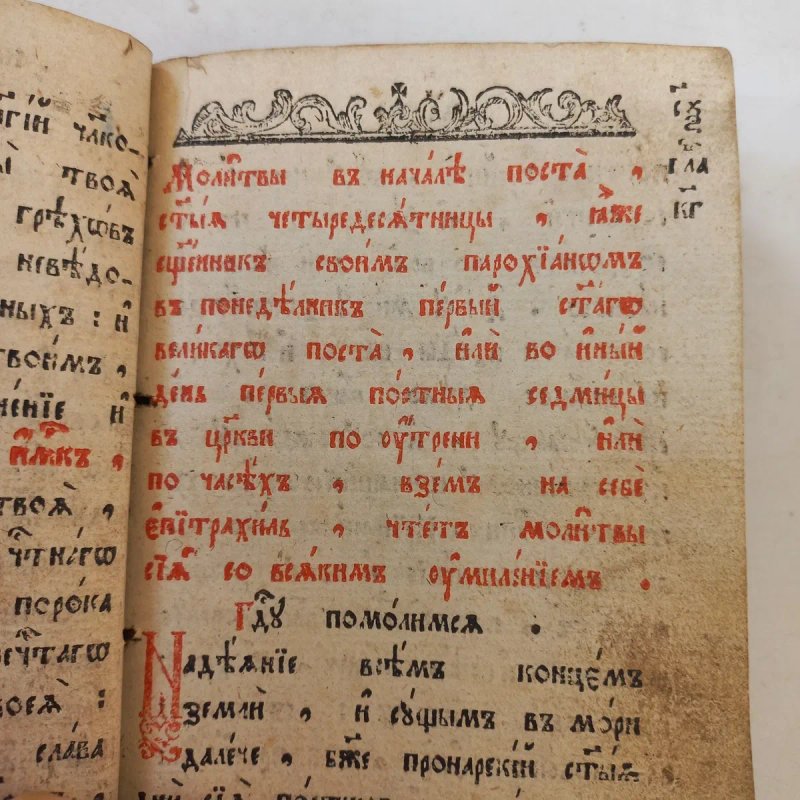 гі́й чл҃ко-
твоѧ̀
грѣхѡ́въ
невѣ́до-
ныхъ : и҆
твои́мъ ,
не́нїе и҆
и҆́мкъ ,
твоѧ̀ ,
чⷭ҇тнагѡ
поро́ка
чⷭ҇тагѡ
воеѧ̀ :
сла́ва
Моли҃твы въ нача́лѣ поста̀ ,
ст҃ы́ѧ четыредесѧ́тницы , ꙗ҆̀же
сщ҃е́нникъ свои̑мъ парохїа́нѡмъ
въ понедѣ́лникъ пе́рвый ст҃а́гѡ
вели́кагѡ поста̀ , и҆лѝ во и҆ны́й
де́нь пе́рвыѧ по́стныѧ седми́цы
въ цр҃кви по оу҆́трени , и҆лѝ
по часѣ́хъ , взе́мъ на себѐ
є҆пїтрахи́ль , чте́тъ моли҃твы
сїѧ̑ со всѧ́кимъ оу҆миле́нїемъ .
Гдⷭ҇ꙋ помо́лимсѧ .
Надѣ́ѧнїе всѣ́мъ конце́мъ
землѝ , и҆ сꙋ́щымъ въ мо́ри
дале́че , бж҃е пронареки́й ст҃ы́ѧ
гла
кг҃